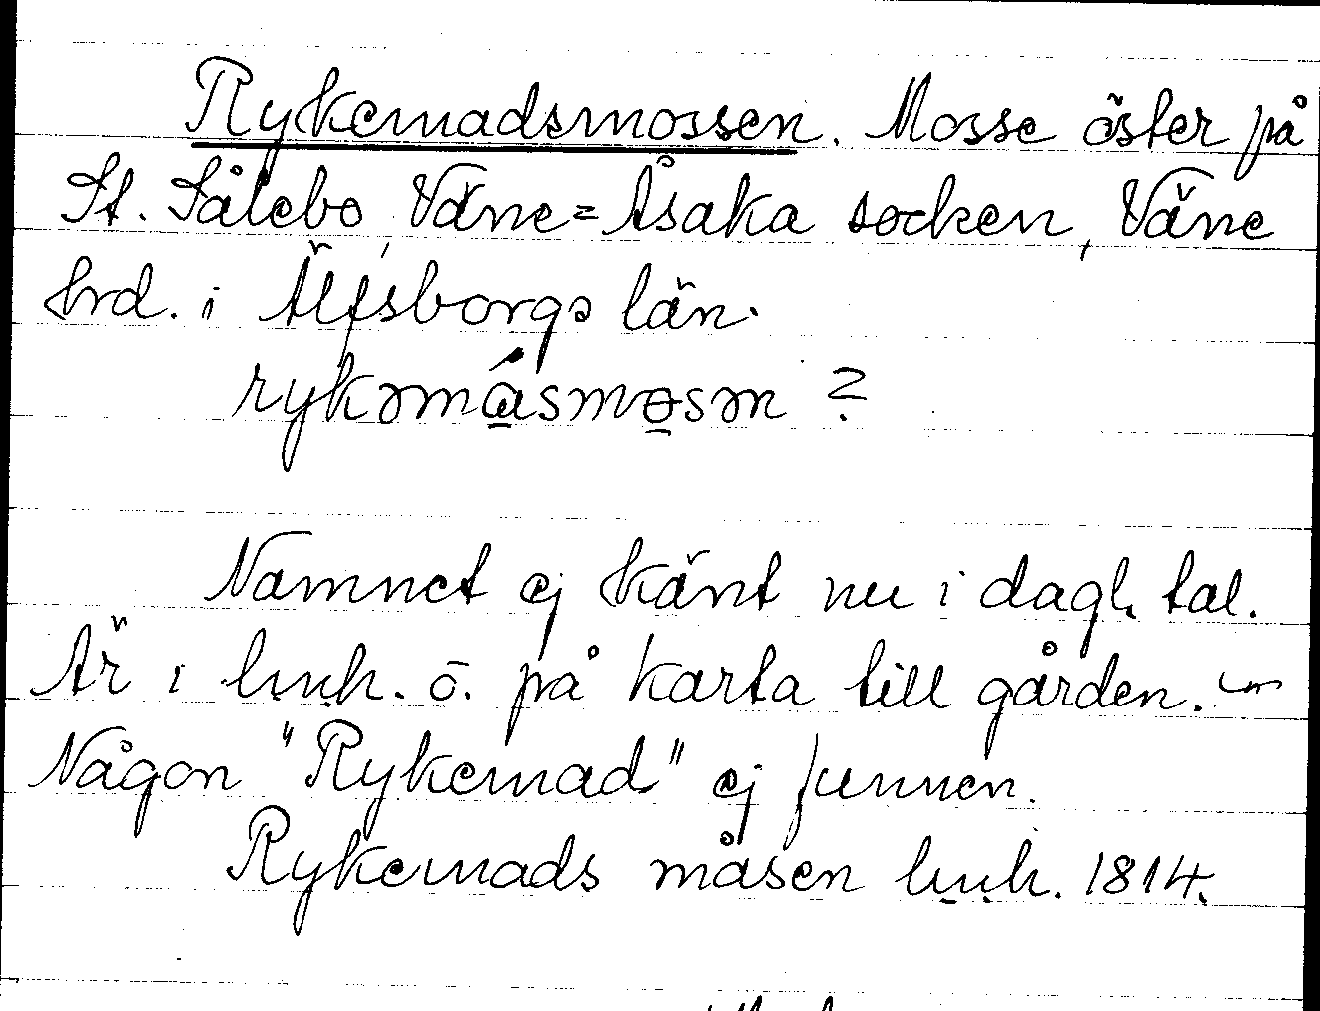 Rykemadsmossen. Mosse öster på
St. Sålebo, Väne=Åsaka socken, Väne
hrd. i Älfsborgs län.
rykəmásmosən ?
Namnet ej känt nu i dagl. tal.
Är i hsyn. o. på karta till gården.
Någon "Rykemad" ej funnen.
Rykemads måsen 1814.